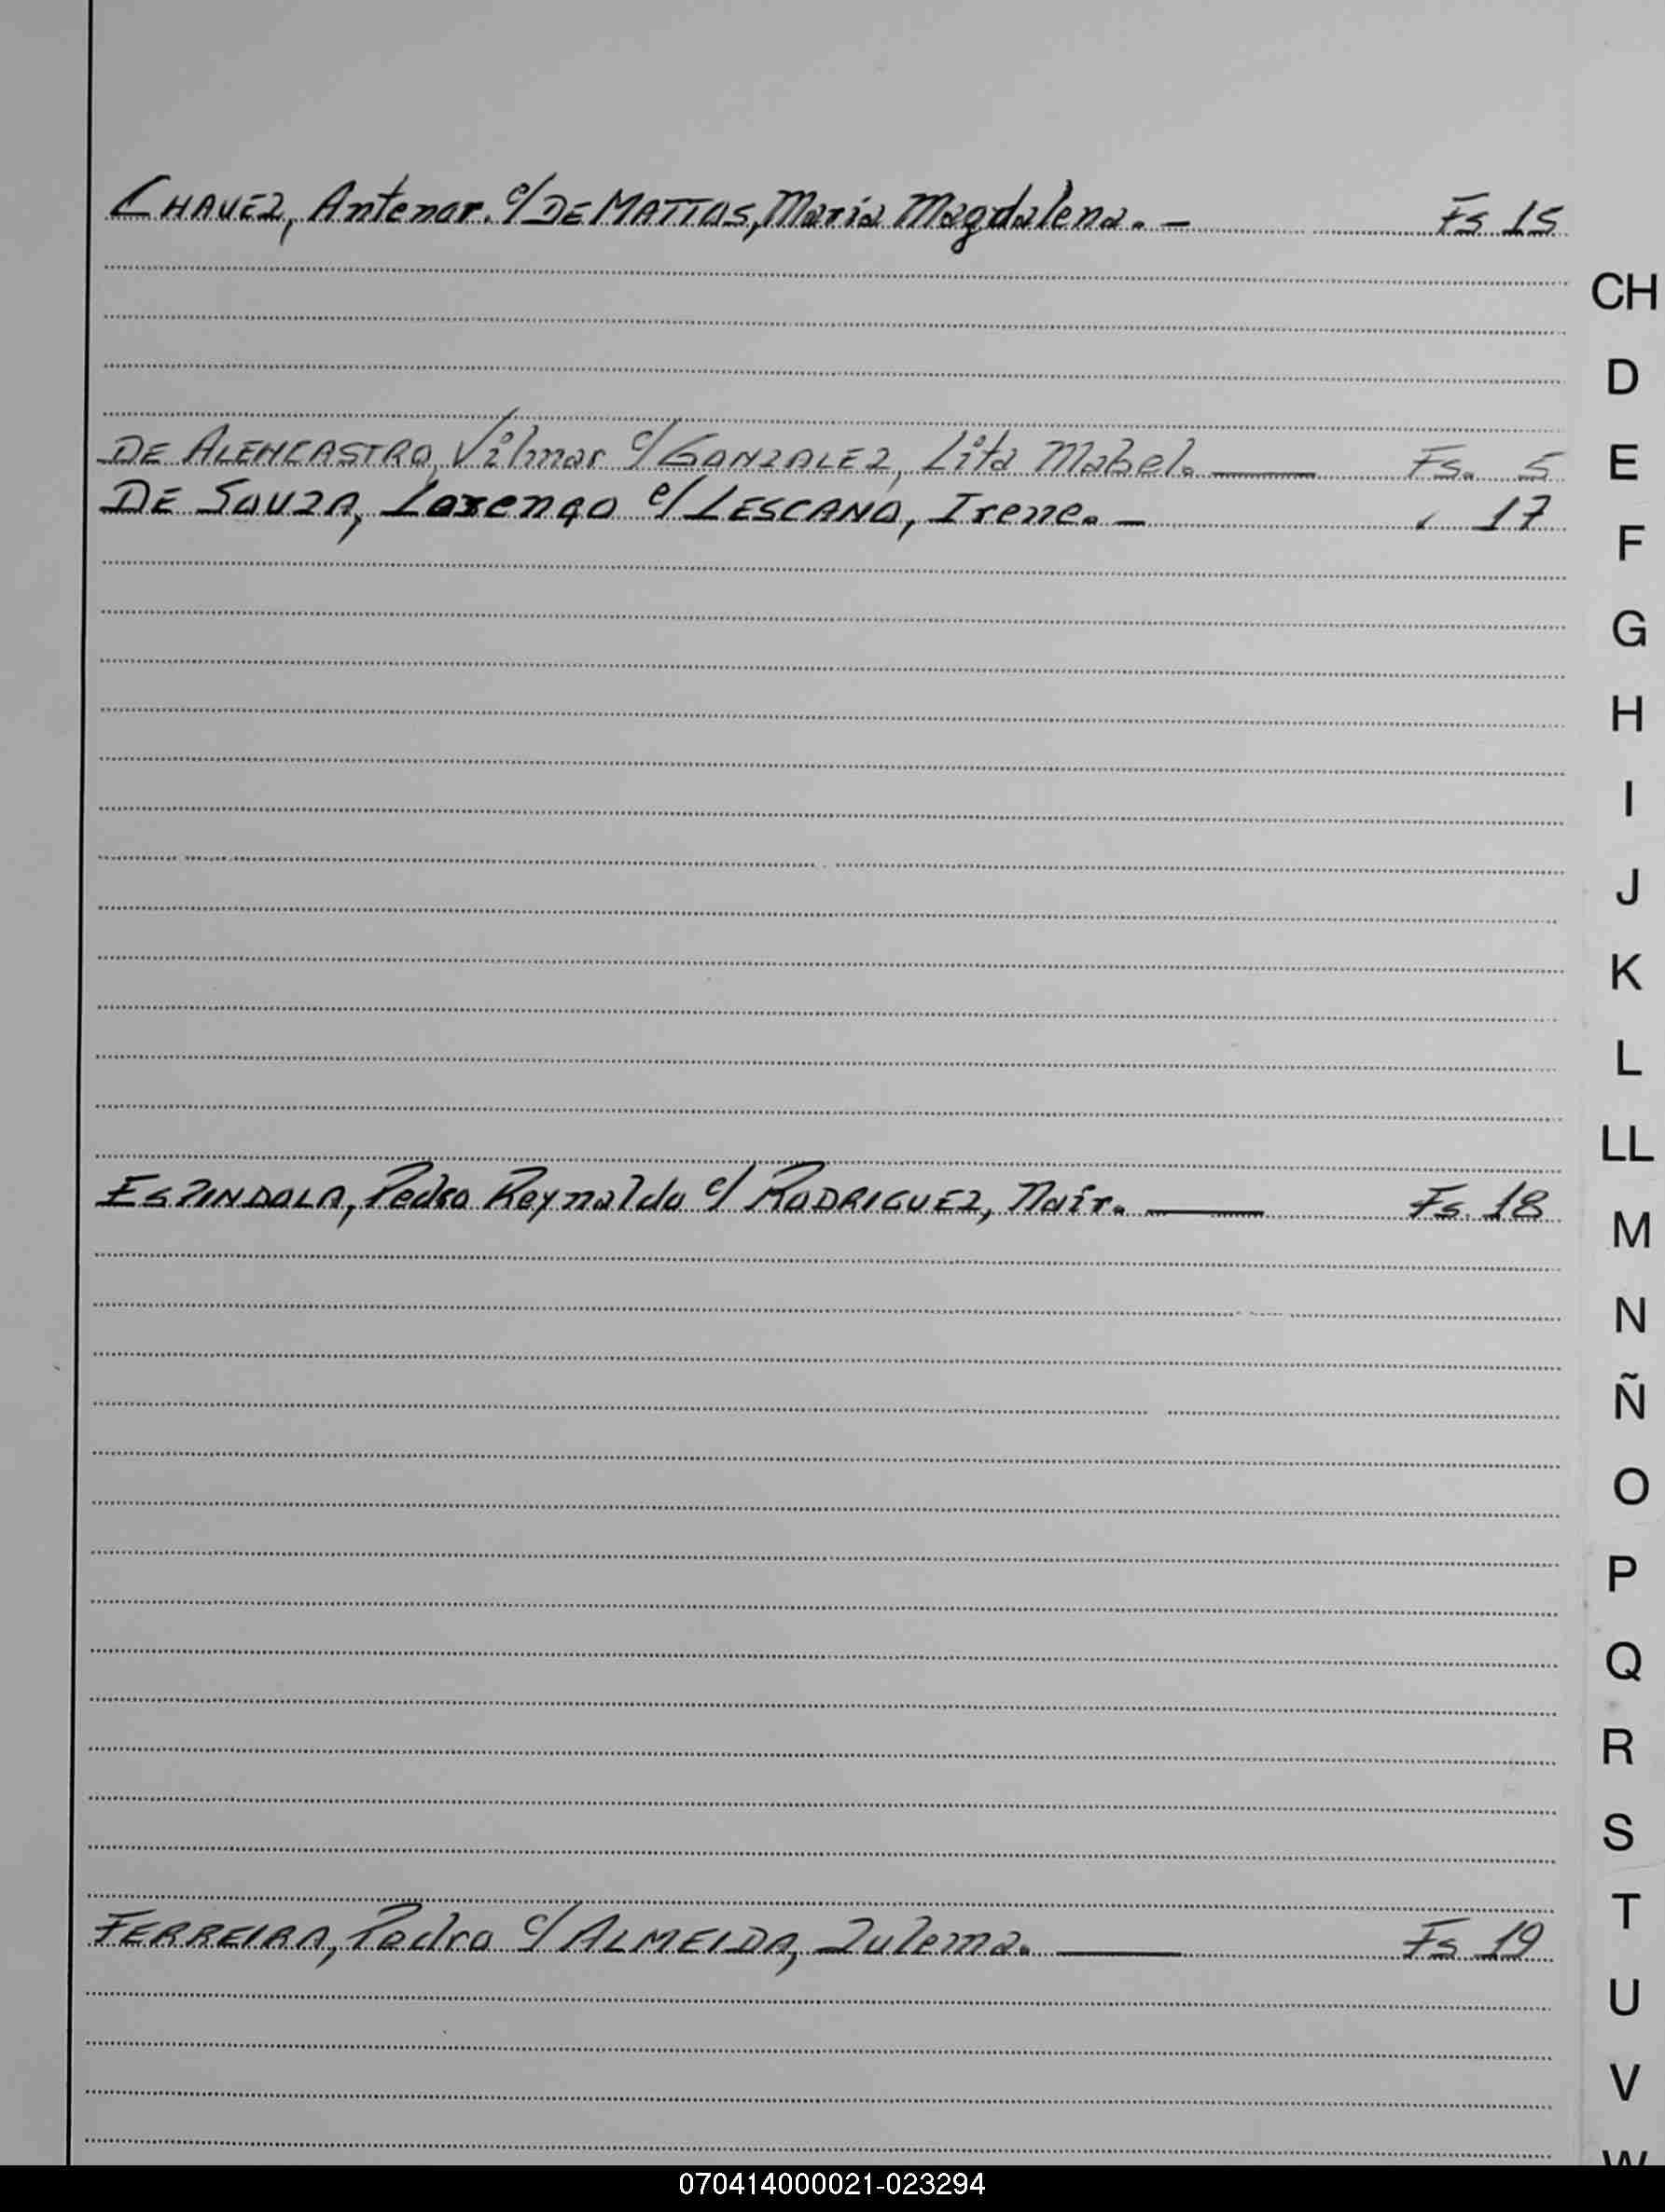 CHAVEZ, Antenor. c/ DE MATTOS, María Magdalena. - Fs 15
CH
D
DE ALENCASTRO, Vilmar c/ GONZALEZ, Lita Mabel. — Fs. 5
E
DE SOUZA, Lorenço c/ LESCANO, Irene. - 17
F
G
H
I
J
K
L
LL
ESPINDOLA, Pedro Reynaldo c/ RODRIGUEZ, Nair. — Fs. 18
M
N
Ñ
O
P
Q
R
S
T
FERREIRA, Pedro c/ ALMEIDA, Zulema. — Fs 19
U
V
W
070414000021-023294